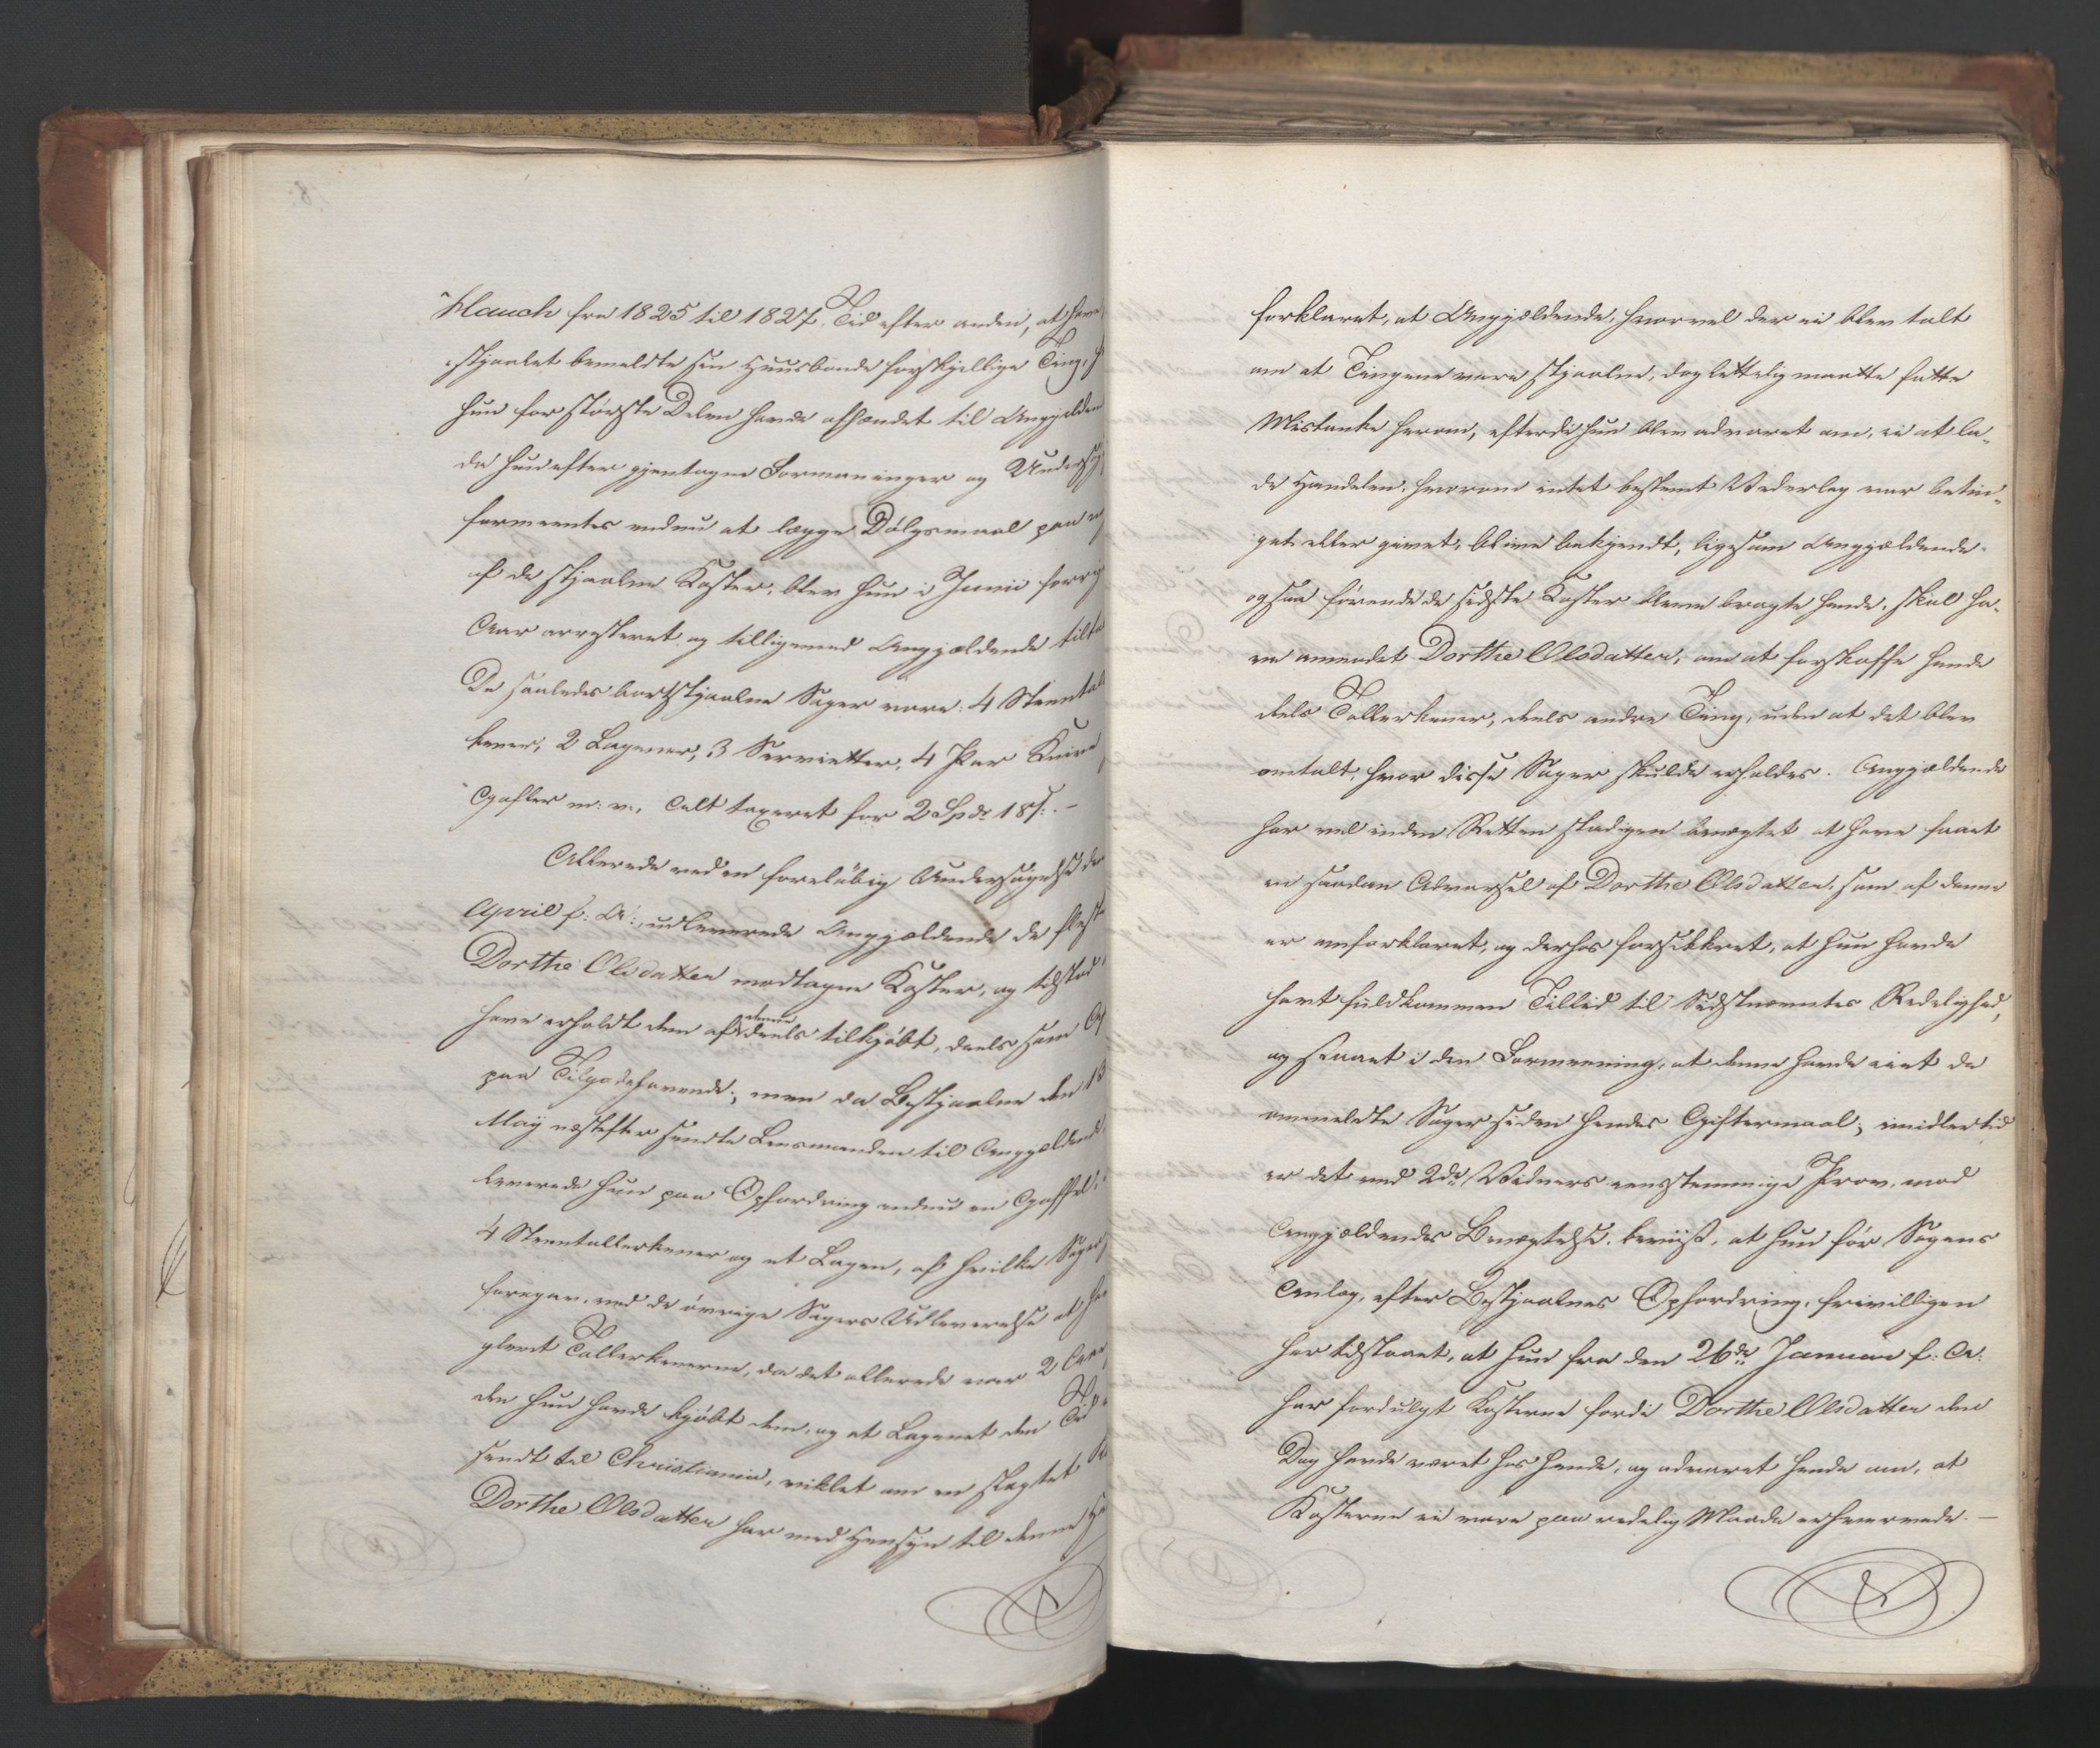 Hauch fra 1825 til 1827, Tid efter anden, at have
stjaalet bemeldte sin Huusbonde forskjellige Ting,
hun for største Delen havde afhændet til Angjælden
da hun efter gjentagne Formaninger og Undersøg
formeentes endnu at lægge Dølgsmaal paa
af de stjaalne Koster, blev hun i Junii forrig
Aar arresteret og tilligemed Angjældende tilta
De saaledes bortstjaalne Sager vare: 4 Steental
kener, 2 Lagener, 3 Servietter, 4 Par Knive
Gafler m: v:, Alt taxeret for 2 Spdr 18 s. –
Allerede ved en foreløbig Undersøgelse den
April f: A:, udleverede Angjældende de fleste
Dorthe Olsdatter modtagne Koster, og tilstod
have erholdt dem af denne deels tilkjøbt, deels som
paa Tilgodehavende; men da Bestjaalne den 13
May næstefter sendte Lensmanden til Angjældende,
leverede hun paa Opfordring endnu en Gaffel,
4 Steentallerkener og et Lagen, af hvilke Sager
foregav, ved de øvrige Sagers Udleverelse at have
glemt Tallerkenerne, da det allerede var 2 Aar
den hun havde kjøbt dem, og at Lagenet den Tid
sendt til Christiania, viklet om en slagtet
Dorthe Olsdatter har med Hensyn til denne
forklaret, at Angjældende, hvorvel der ei blev talt
om at Tingene vare stjaalne, dog lettelig maatte fatte
Mistanke herom, efterdi hun blev advaret om, ei at la-
de Handelen, hvorom intet bestemt Vederlag var betin-
get eller givet, blive bekjendt, ligesom Angjældende
ogsaa førend de sidste Koster bleve bragte hende, skal ha-
ve anmodet Dorthe Olsdatter, om at forskaffe hende
deels Tallerkener, deels andre Ting, uden at det blev
omtalt, hvor disse Sager skulde erholdes. Angjældende
har vel inden Retten stadigen benægtet at have faaet
en saadan Advarsel af Dorthe Olsdatter, som af denne
er omforklaret, og derhos forsikkret, at hun havde
havt fuldkommen Tillid til Sidstnævntes Redelighed,
og staaet i den Formening, at denne havde eiet de
ommeldte Sager siden hendes Giftermaal; imidlertid
er det ved 2de Vidners eenstemmige Prov, mod
Angjældendes Benægtelse, beviist, at hun før Sagens
Anlæg, efter Bestjaalnes Opfordring, frivilligen
har tilstaaet, at hun fra den 26de Januar f: A:
har fordulgt Kosterne fordi Dorthe Olsdatter den
Dag havde været hos hende, og advaret hende om, at
Kosterne ei vare paa redelig Maade erhvervede. –